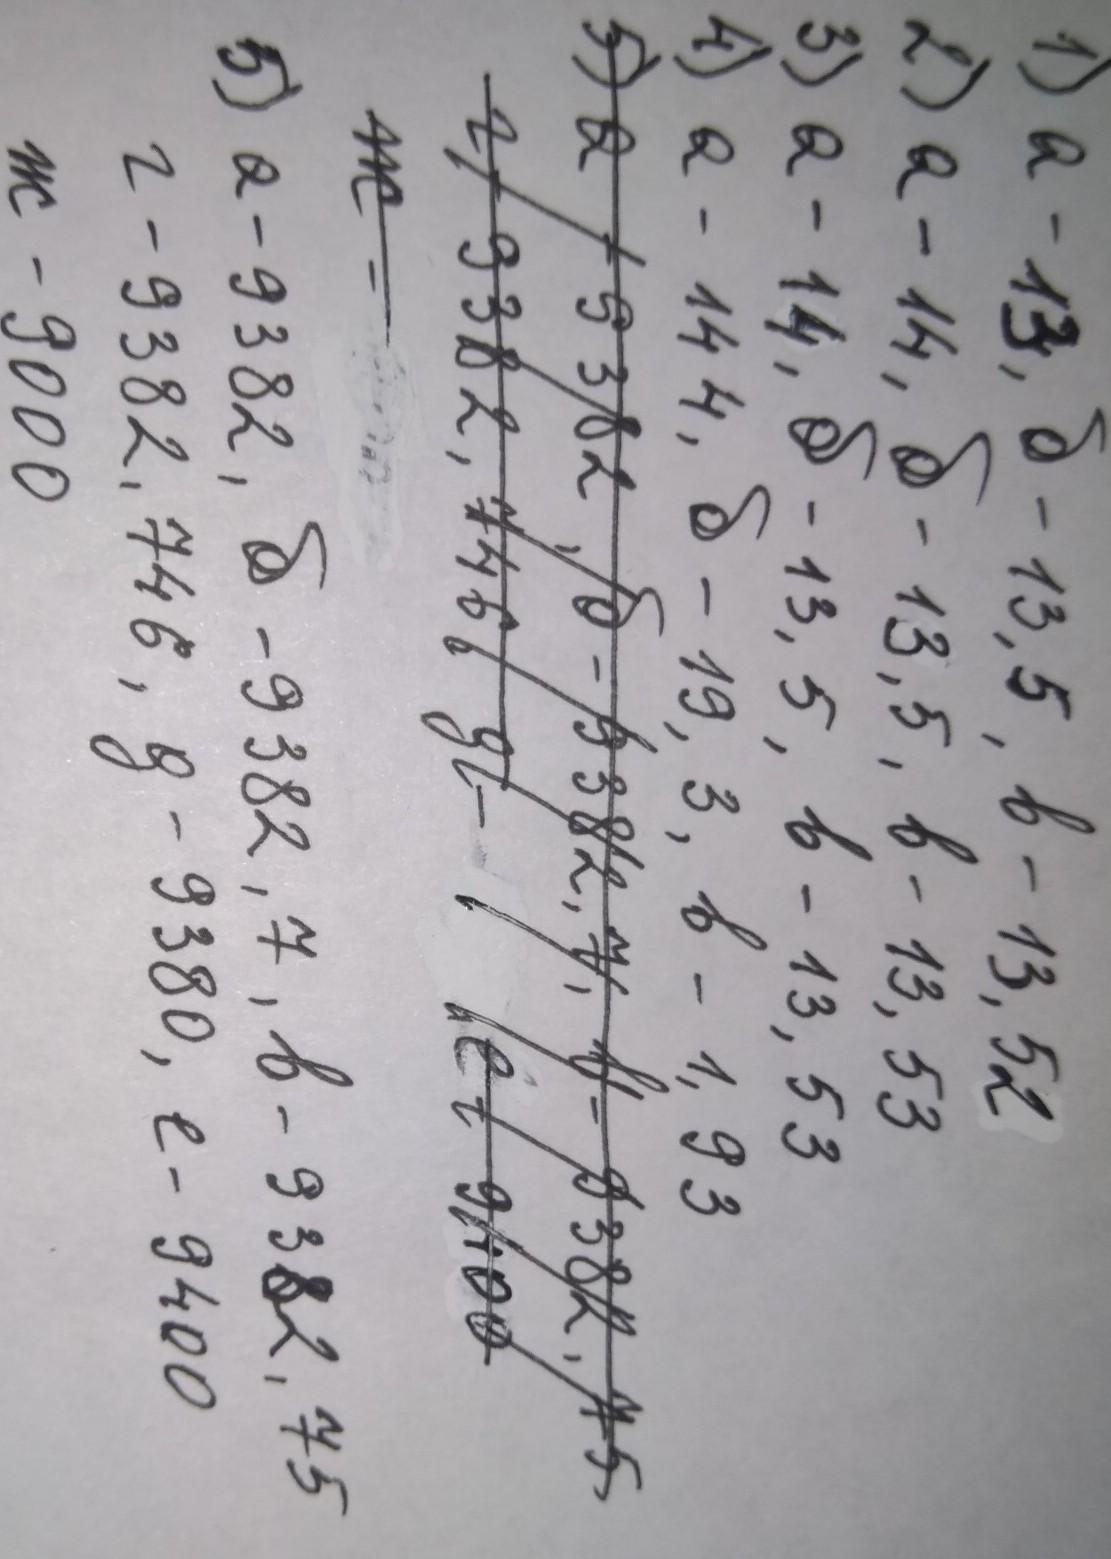 1) а - 13, б - 13,5, в - 13,52
2) а - 14, б - 13,5, в - 13,53
3) а - 14, б - 13,5, в - 13,53
4) а - 144, б - 19,3, в - 1,93
5) а - 9382, б - 9382,7, в - 9382,75
г - 9382,746, д - е - 9400
ж -
5) а - 9382, б - 9382,7, в - 9382,75
г - 9382,746, д - 9380, е - 9400
ж - 9000